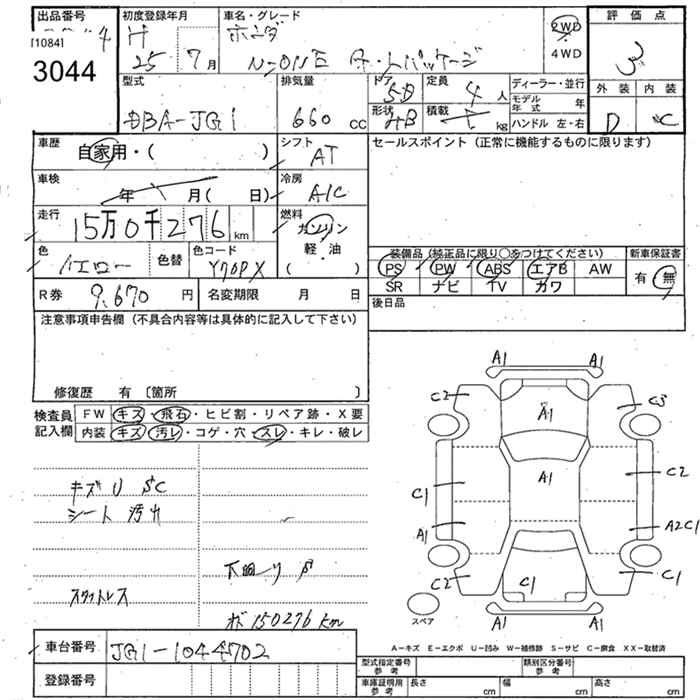 出品番号 初度登録年月 車名・グレード 評価点
[1084] H ホンダ 2WD
3044 25 7月 N-ONE 4WD 3
型式 排気量 ドア 定員 ディーラー・並行 外装 内装
DBA-JG1 660 CC 5D 4人 モデル年式 年 D C
形状 HB 積載 kg ハンドル 左・右
車歴 自家用・( ) シフト AT セールスポイント (正常に機能するものに限ります)
車検 年 月( 日) 冷房 A/C
走行 15万0千276 km 燃料 ガソリン
軽・油
( )
色 イエロー 色替 色コード Y70PX
装備品 (純正品に限り○をつけてください) 新車保証書
PS PW ABS エアB AW 有 無
SR ナビ TV カワ
R券 9,670 円 名変期限 月 日 後日品
注意事項申告欄 (不具合内容等は具体的に記入して下さい)
修復歴 有 〔箇所 〕
検査員 FW キズ・飛石・ヒビ割・リペア跡・X要
記入欄 内装 キズ・汚レ・コゲ・穴・スレ・キレ・破レ
A1 A1
C2 C3
A1
A1 C2
C1
A1 A2C1
C2 C1 C1
A1 A1
スペア
キズ U SC
シート 汚れ
下廻り S
スタットレス
150276 km
A−キズ E−エクボ U−凹み W−補修跡 S−サビ C−腐食 XX−取替済
車台番号 JG1-1044702
登録番号
型式指定番号 参考 類別区分番号 参考
車庫証明用 参考 長さ cm 幅 cm 高さ cm